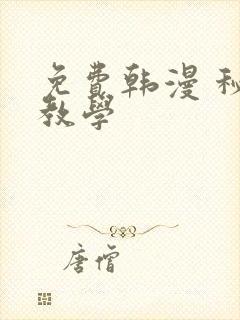 免费韩漫 秘
教学
唐僧